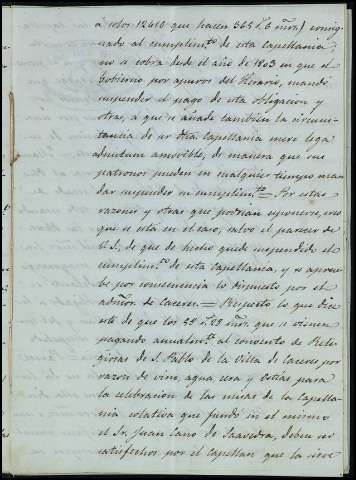 á solos 12410 que hacen 365 r.s 6 mrs,) consig-
nado al cumplim.to de esta Capellania,
no se cobra desde el año de 1803 en que el
Gobierno por apuros del Herario, mandó
suspender el pago de esta obligacion y
otras, a que se añade tambien la circuns-
tancia de ser dicha Capellania mere lega
admutum amovible, de manera que sus
patronos pueden en cualquier tiempo man
dar suspender su cumplim.to = Por estas
razones y otras que podrian esponerse, creo
que se está en el caso, salvo el parecer de
V.S. de que de hecho quede suspendido el
cumplim.to de esta Capellania, y se aprue-
be por consecuencia lo dispuesto por el
admor. de Caceres. = Respecto lo que dice
este de que los 58 r.s 23 mrs. que se vienen
pagando anualm.te al convento de Reli-
giosas de S. Pablo de la Villa de Caceres por
razon de vino, agua cera y ostias para
la celebracion de las misas de la Capella-
nia colativa que fundó en el mismo
el Sr. Juan Cano de Saavedra, deben ser
satisfechos por el capellan que la sirve